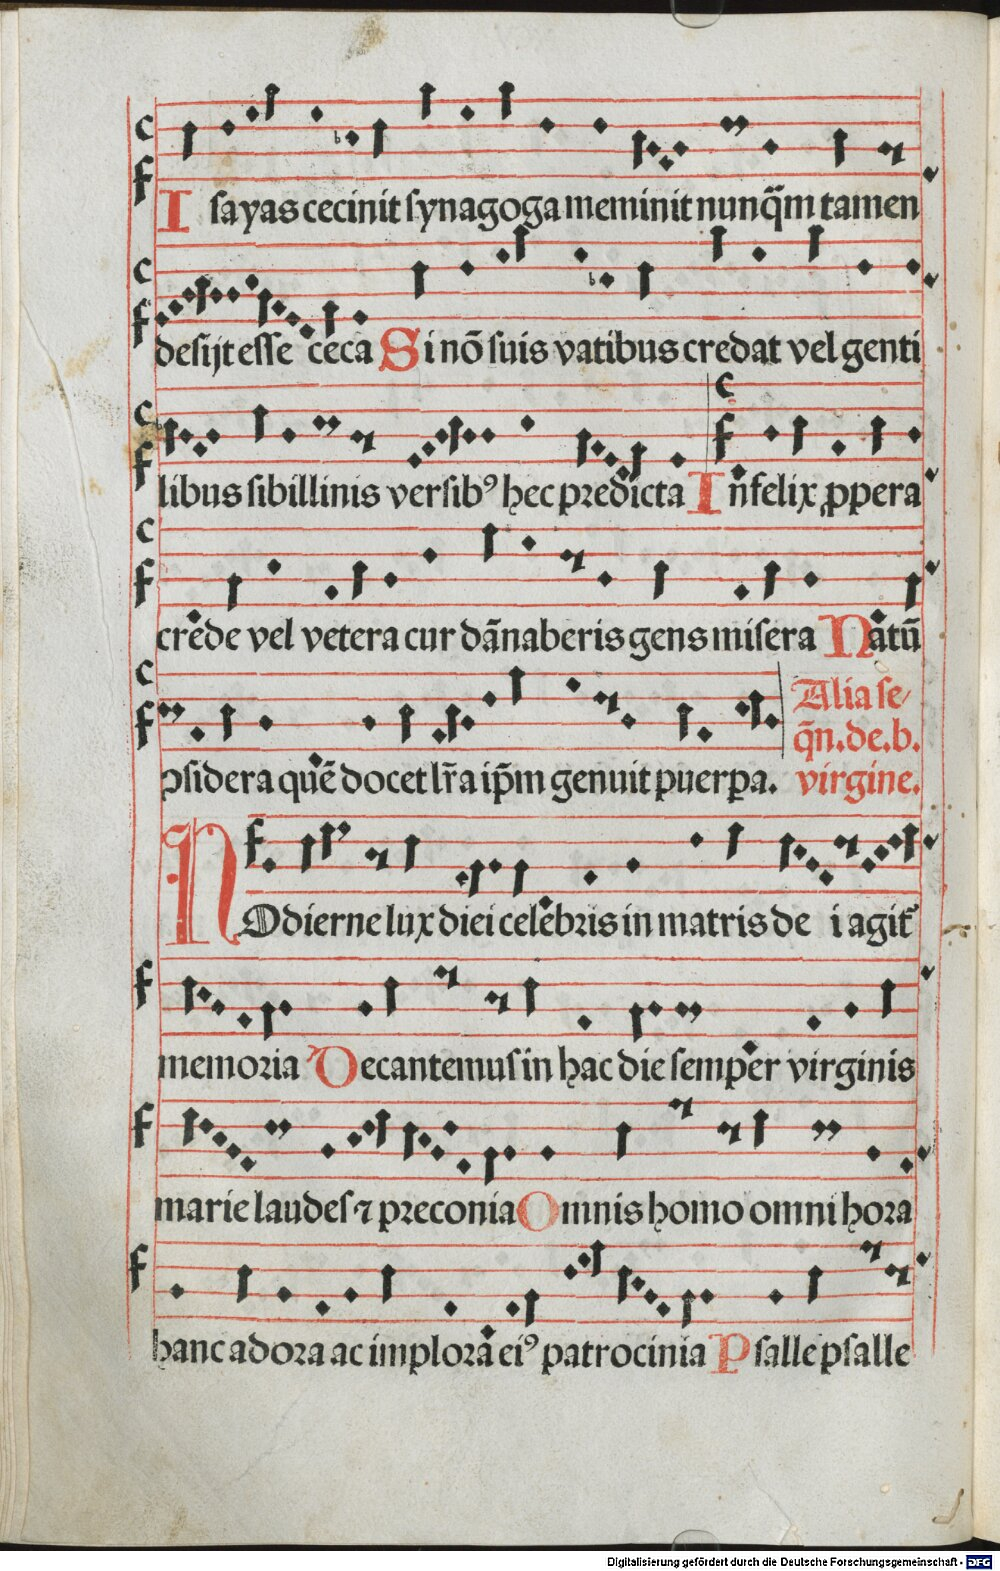 Isayas cecinit synagoga meminit nunq̃m tamen
desijt esse ceca Si nō suis vatibus credat vel genti
libus sibillinis versibꝰ hec predicta Infelix ꝓpera
crede vel vetera cur dānaberis gens misera Natū
ꝯsidera quē docet lr̃a ip̄m genuit puerpa.
Alia se⸗
q̃n. de. b.
virgine.
Hodierne lux diei celebris in matris de i agit᷑
memoria Decantemus in hac die semper virginis
marie laudes ⁊ preconia Omnis homo omni hora
hanc adora ac implora eiꝰ patrocinia Psalle psalle
Digitalisierung gefördert durch die Deutsche Forschungsgemeinschaft - DFG